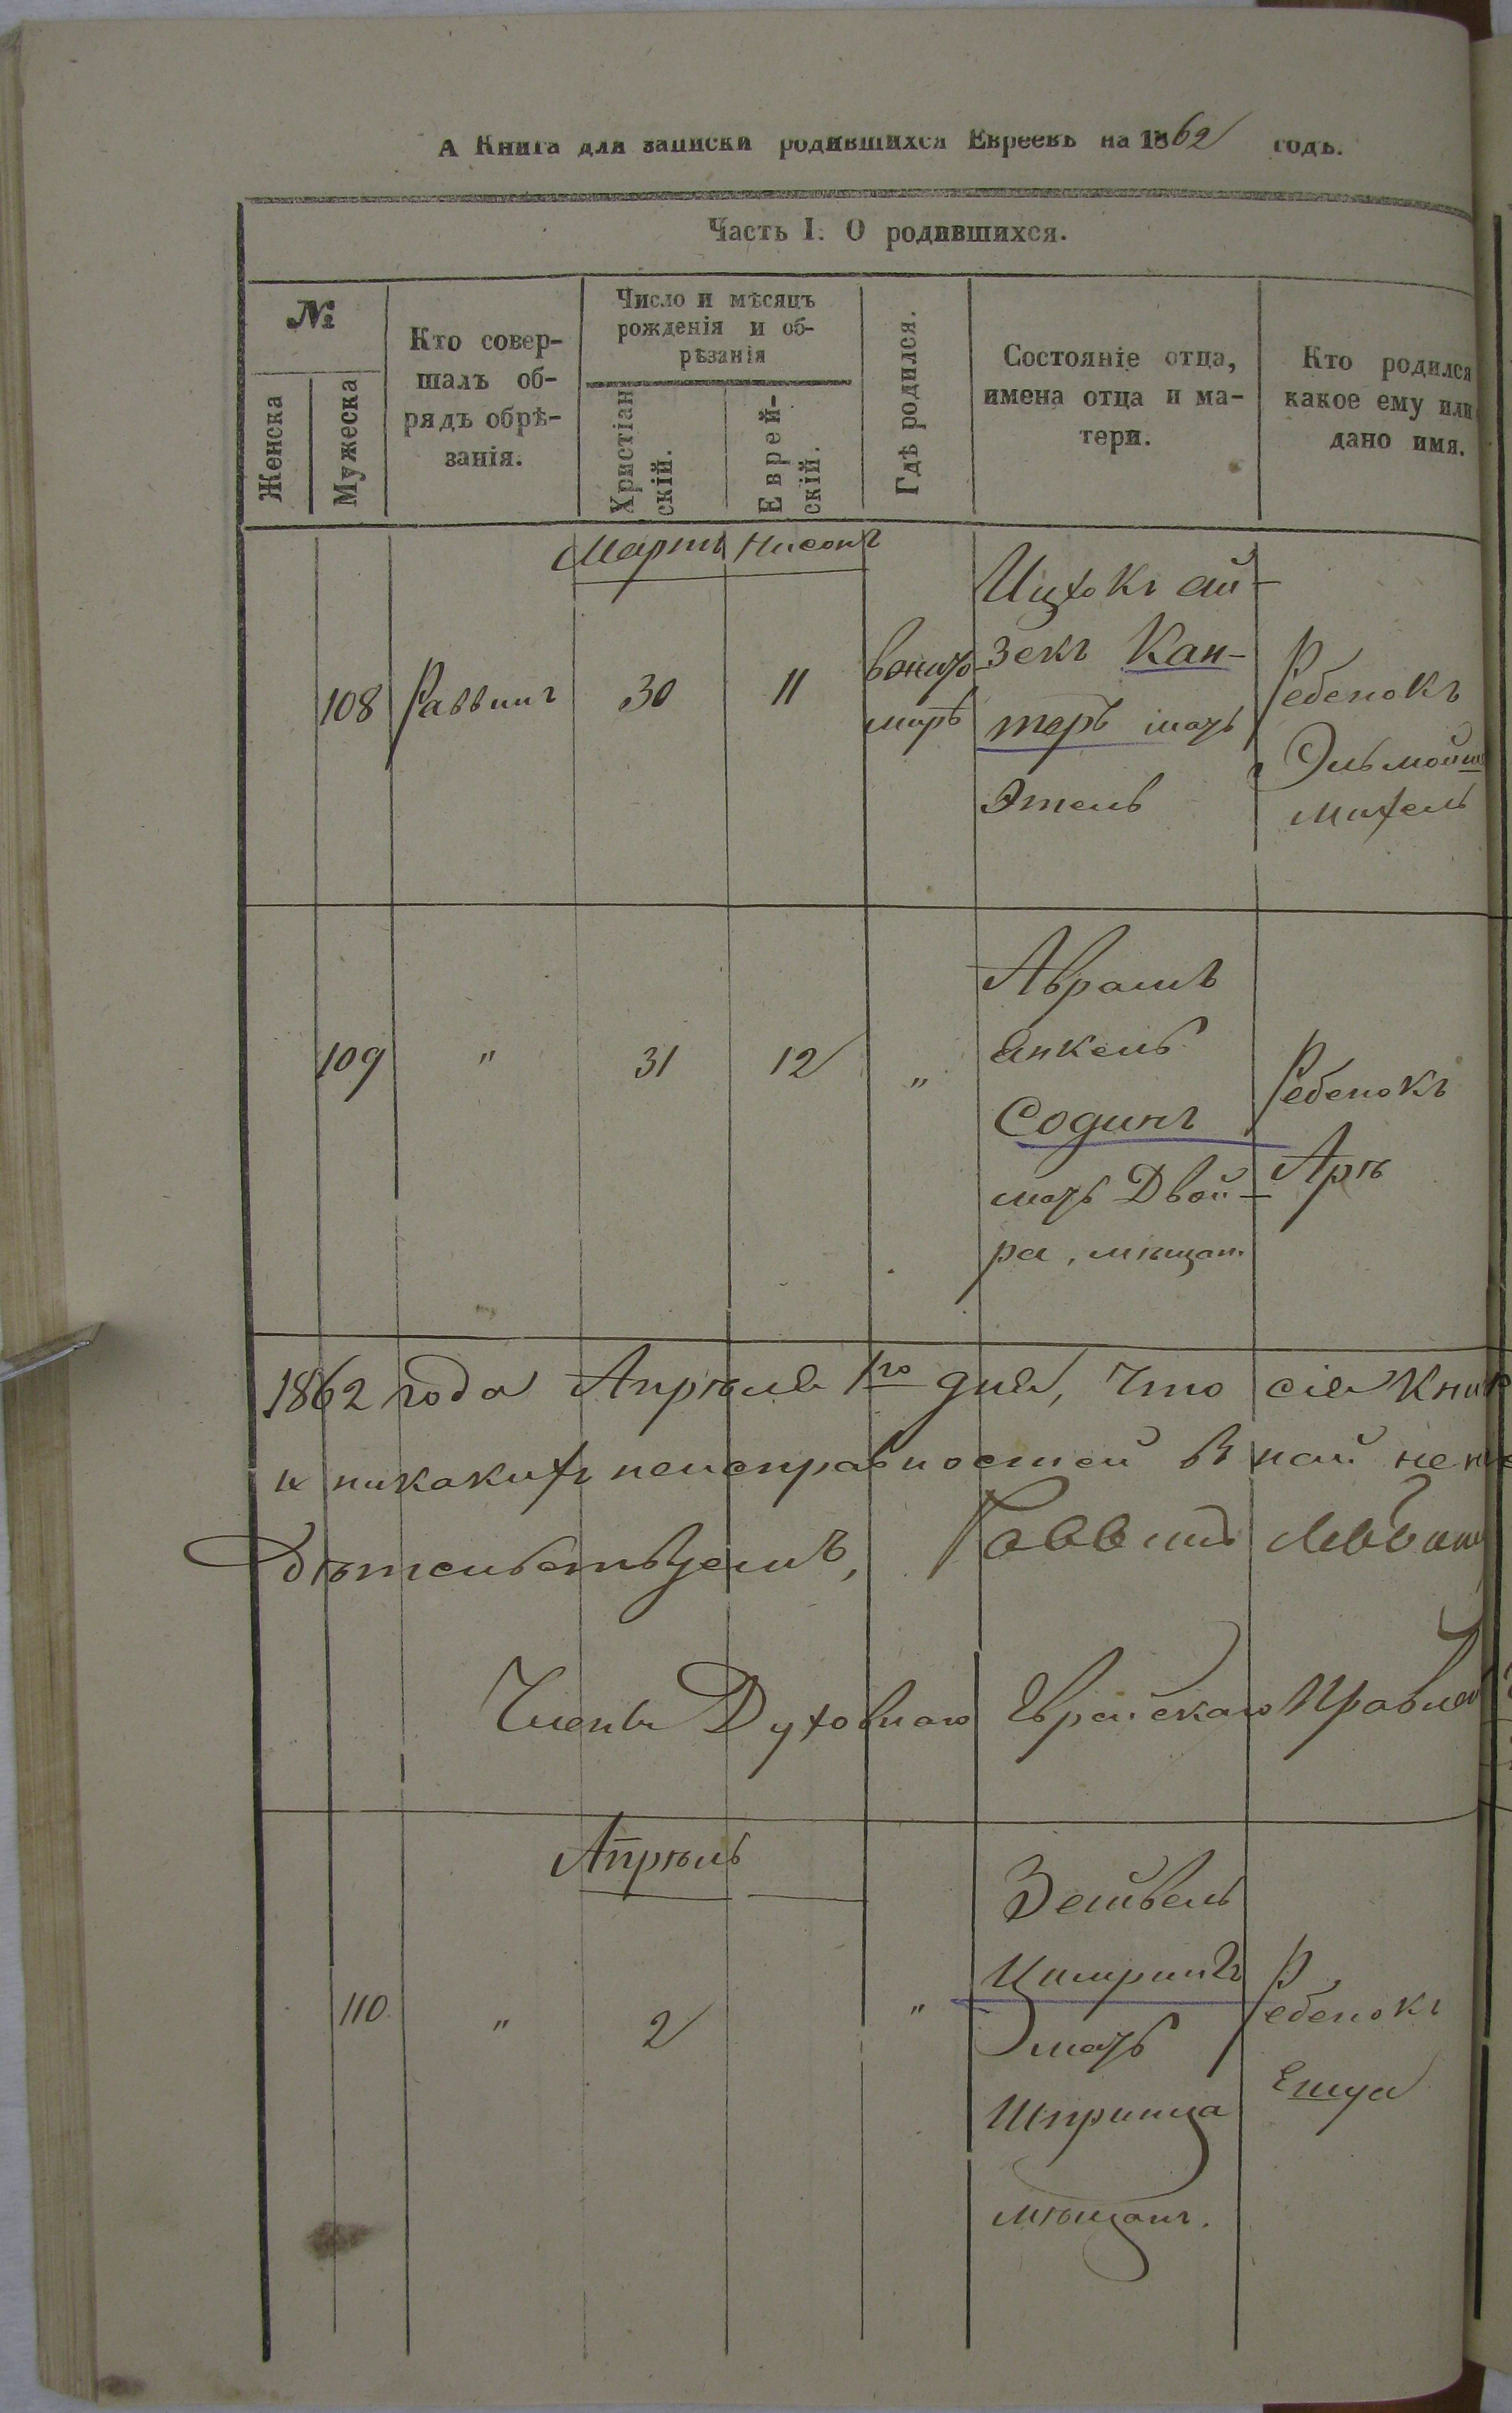 А Книга для записки родившихся Евреевъ на 1862 годъ.
Часть I. О родившихся.
№
Женска
Мужеска
Кто совер-
шалъ об-
рядъ обрѣ-
занія.
Число и мѣсяцъ
рожденія и об-
рѣзанія
Христіан
скій.
Еврей-
скій.
Гдѣ родился.
Состояніе отца,
имена отца и ма-
тери.
Кто родился
какое ему или
дано имя.
Мартъ Нисонъ
108
Раввинъ
30
11
Ицхокъ ай-
зекъ Кан-
теръ мать
Этель
Ребенокъ
михель
109
"
31
12
"
Аврамъ
Янкель
Содинъ
мать Двой-
ра, мѣщан.
Ребенокъ
Аръ
1862 года Апрѣля 1го дня, что сія Книг
и никакихъ неисправностей въ ней не
дѣтельствуемъ, Раввинъ
Члены Духовнаго Еврейскаго Правле
Апрѣль
110
"
2
"
Зейвель
Цимринъ
мать
Шпринца
мѣщанъ.
Ребенокъ
Ешуа